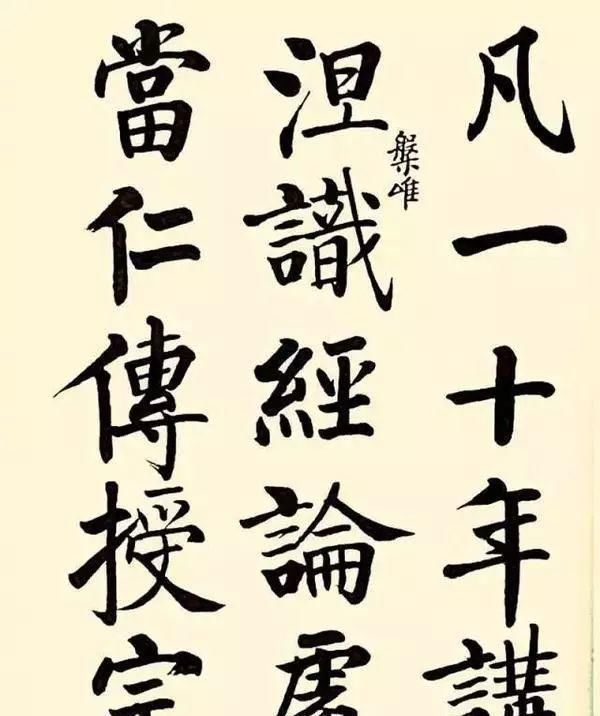 凡一十年講
槃唯
涅識經論處
當仁傳授宗